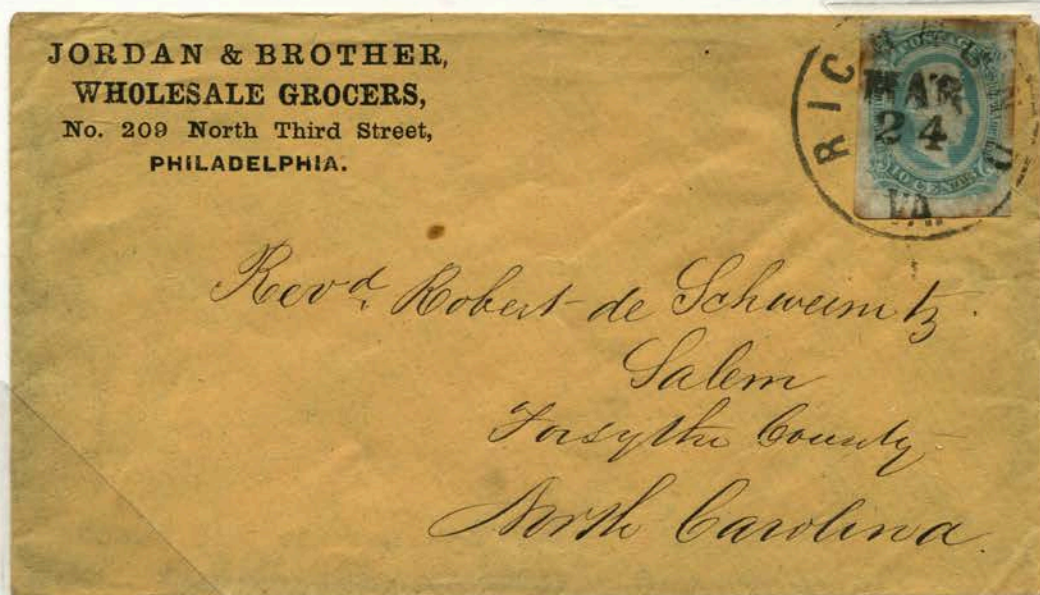 JORDAN & BROTHER,
WHOLESALE GROCERS,
No. 209 North Third Street,
PHILADELPHIA.
RICHMOND
MAR
24
VA.
Revd. Robert de Schweinitz.
Salem
Forsythe County
North Carolina.